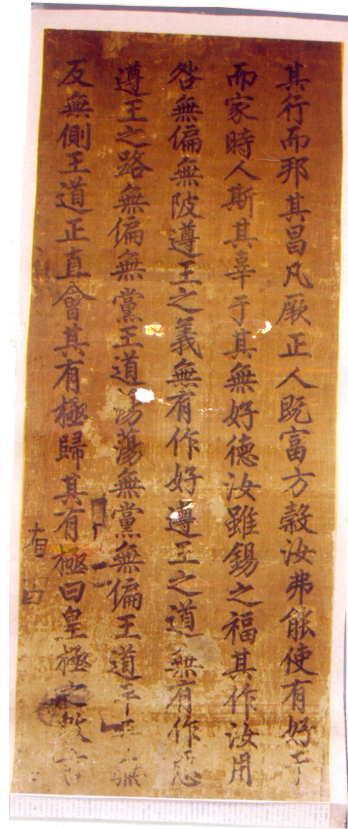 其行而邦其昌凡厥正人既富方穀汝弗能使有好于
而家時人斯其辜于其無好德汝雖錫之福其作汝用
咎無偏無陂遵王之義無有作好遵王之道無有作惡
遵王之路無偏無黨王道蕩蕩無黨無偏王道平平無
反無側王道正直會其有極歸其有極曰皇極之敷言